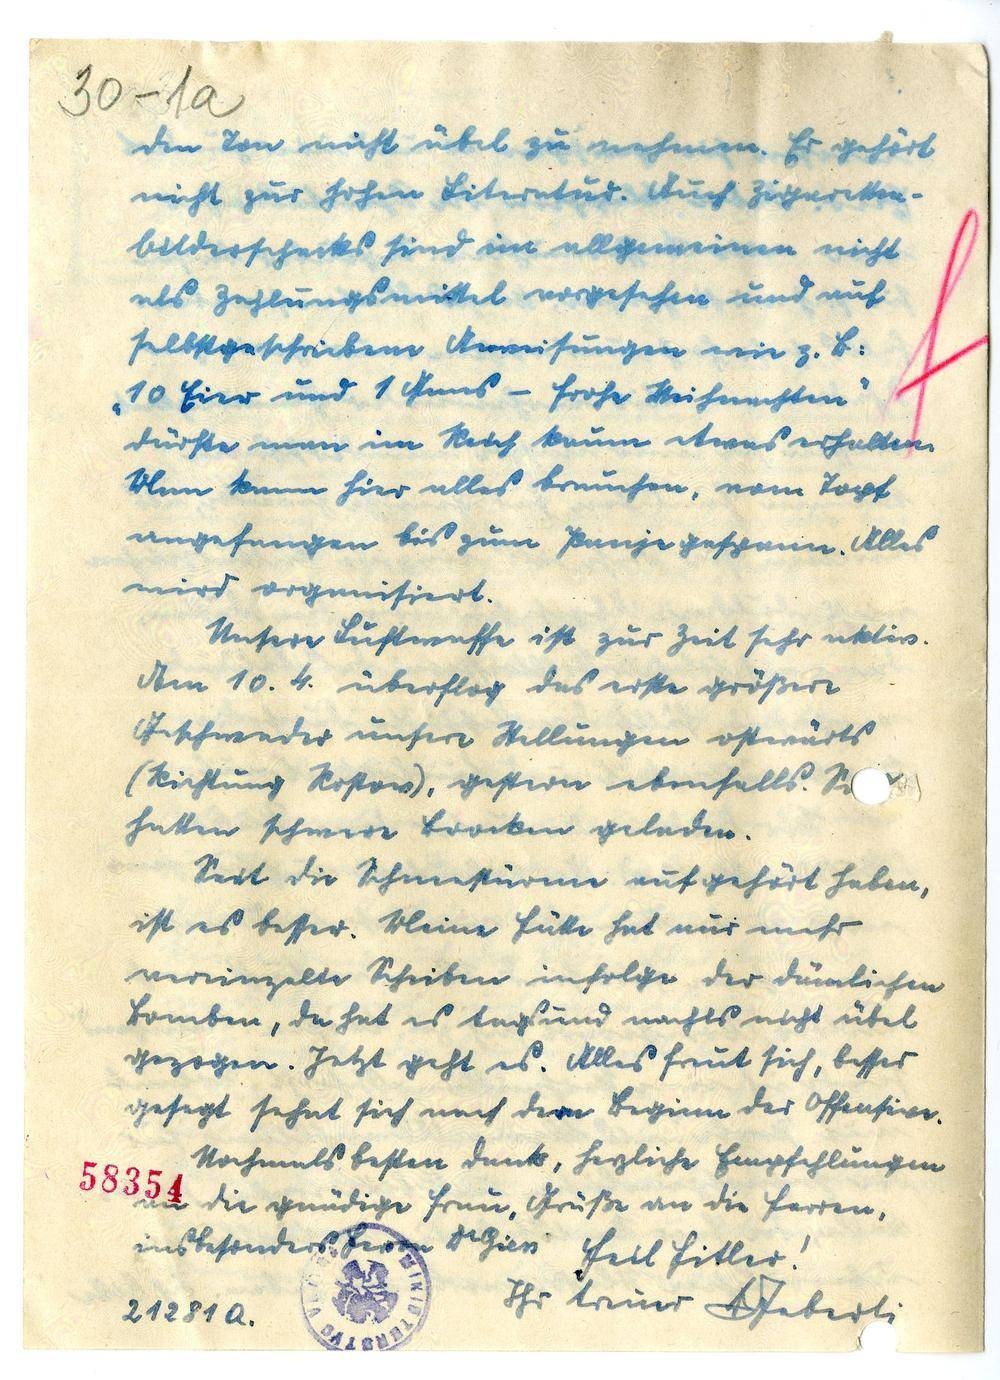 30-1a
den Ton nicht übel zu nehmen. Er gehört
nicht zur hohen Literatur. Auch Zigaretten-
bilderschecks sind im allgemeinen nicht
als Zahlungsmittel vorgesehen und auf
selbstgeschriebene Anweisungen wie z. B:
„10 Eier und 1 Gans – frohe Weihnachten"
dürfte man im Reich kaum etwas erhalten.
Man kann hier alles brauchen, vom Topf
angefangen bis zum Panjegespann. Alles
wird organisiert.
Unsere Luftwaffe ist zur Zeit sehr aktiv.
Am 10. 4. überflog das erste größere
Geschwader unsere Stellungen ostwärts
(Richtung Rostow), gestern ebenfalls.
hatten schwere Brocken geladen.
Seit die Schneestürme aufgehört haben,
ist es besser. Meine Hütte hat nur mehr
vereinzelte Scheiben infolge der dämlichen
Bomben, da hat es tagsund nachts nicht übel
gezogen. Jetzt geht es. Alles freut sich, besser
gesagt sehnt sich nach dem Beginn der Offensive.
Nochmals besten Dank, herzliche Empfehlungen
an die gnädige Frau, Grüße an die Herren,
insbesonders Herrn Dr Gies
Heil Hitler!
Ihr treuer
58354
212810.
MINISTERSTVO